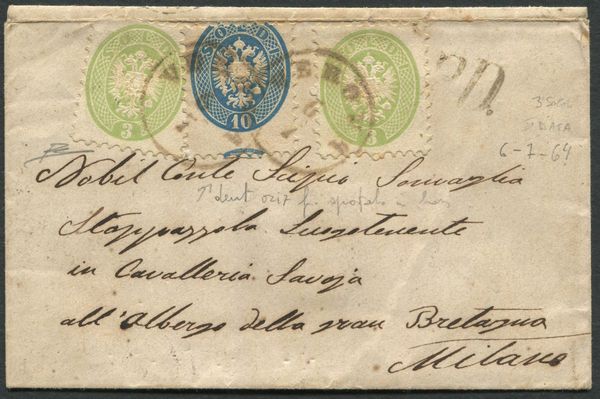 SOLDI SOLDI SOLDI
3 10 3
P.D.
3° SOGG.
5ª DATA
6-7-64
Nobil Conte Scipio Somaglia
Stoppazzola Luogotenente
in Cavalleria Savoja
all'Albergo della gran Bretagna
Milano